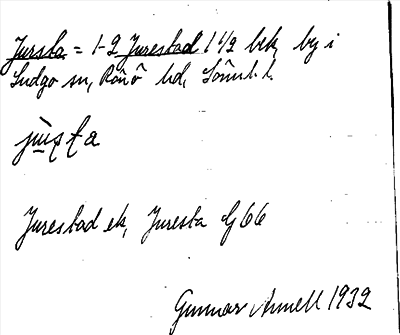 Jursta = 1-2 Jurestad 1 1/2 bek, by i
Ludgo sn, Rönö hd, Sörml. l.
Jurestad ek, Juresta Gf 66
Gunnar Annell 1932